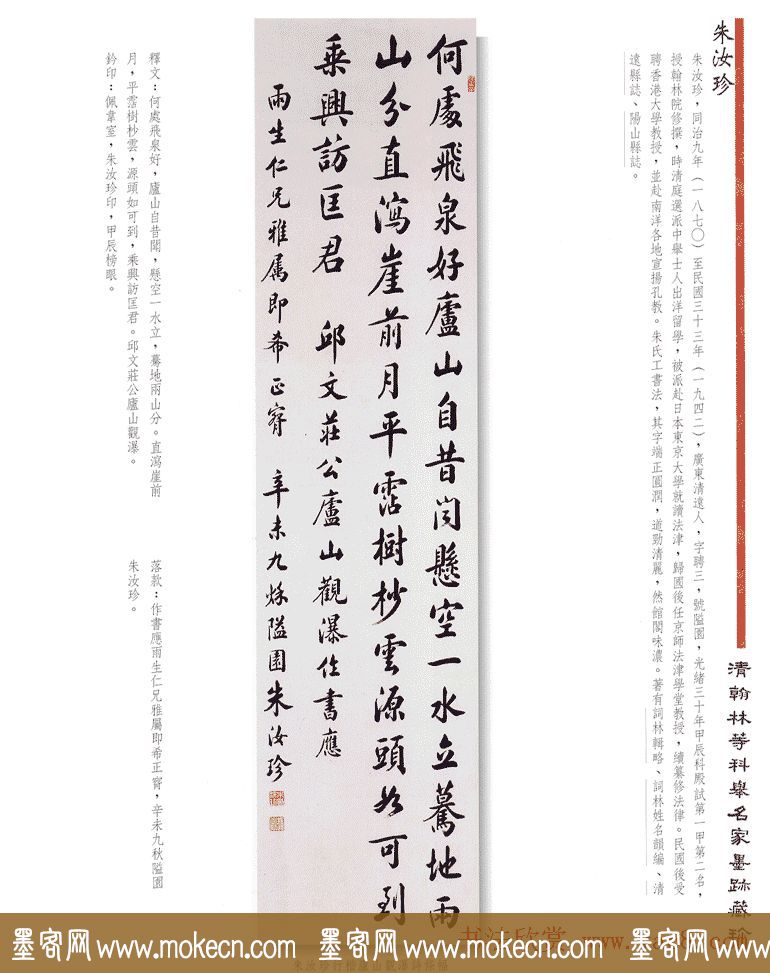 朱汝珍
朱汝珍，同治九年（一八七〇）至民國三十三年（一九四二），廣東清遠人，字聘三，號隘園，光緒三十年甲辰科殿試第一甲第二名，
授翰林院修撰，時清庭選派中舉士人出洋留學，被派赴日本東京大學就讀法津，歸國後任京師法津學堂教授，續纂修法律。民國後受
聘香港大學教授，並赴南洋各地宣揚孔教。朱氏工書法，其字端正圓潤，遒勁清麗，然館閣味濃。著有詞林輯略、詞林姓名韻編、清
遠縣誌、陽山縣誌。
清翰林等科舉名家墨跡藏珍
何處飛泉好廬山自昔闻懸空一水立驀地兩
山分直瀉崖前月平霑樹杪雲源頭如可到
乗興訪匡君 邱文莊公廬山觀瀑作書應
雨生仁兄雅属即希正㝛 辛未九秌隘園朱汝珍
釋文：何處飛泉好，廬山自昔聞，懸空一水立，驀地兩山分。直瀉崖前
月，平霑樹杪雲，源頭如可到，乘興訪匡君。邱文莊公廬山觀瀑。
鈐印：佩韋室，朱汝珍印，甲辰榜眼。
落款：作書應雨生仁兄雅屬即希正㝛，辛未九秋隘園
朱汝珍。
墨客网 www.mokecn.com 墨客网 www.mokecn.com 墨客网
书法欣赏